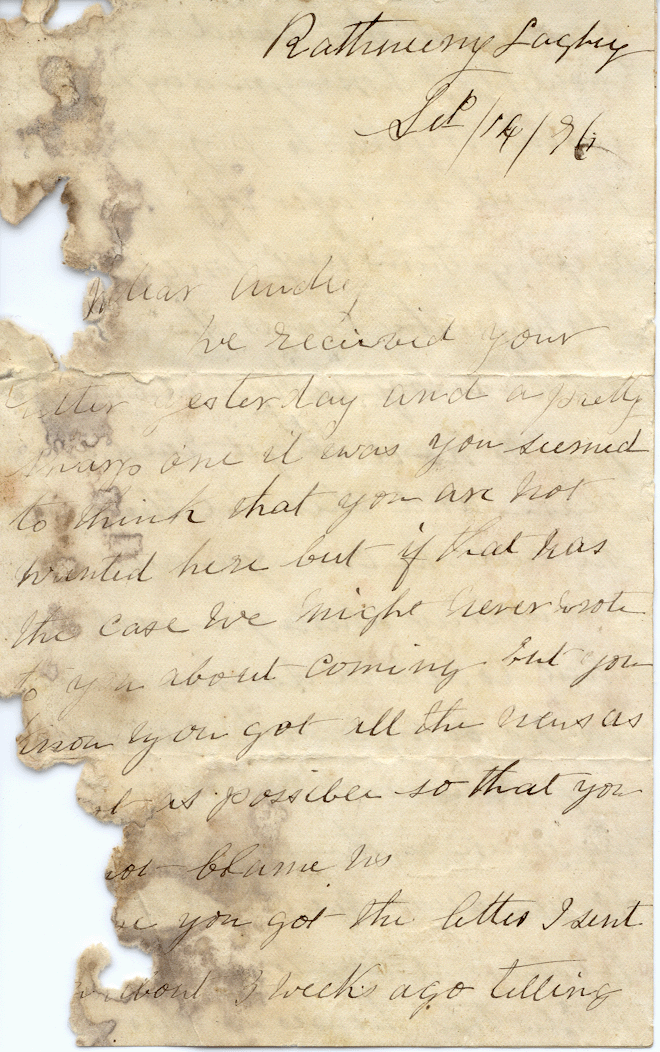 Sep/14/96
Dear Andy
We received your
letter yesterday and a pretty
sharp one it was you seemed
to think that you are not
wanted here but if that has
the case we might never wrote
to you about coming but you
know you got all the news as
as possible so that you
not blame us
you got the letter I sent
about 3 weeks ago telling